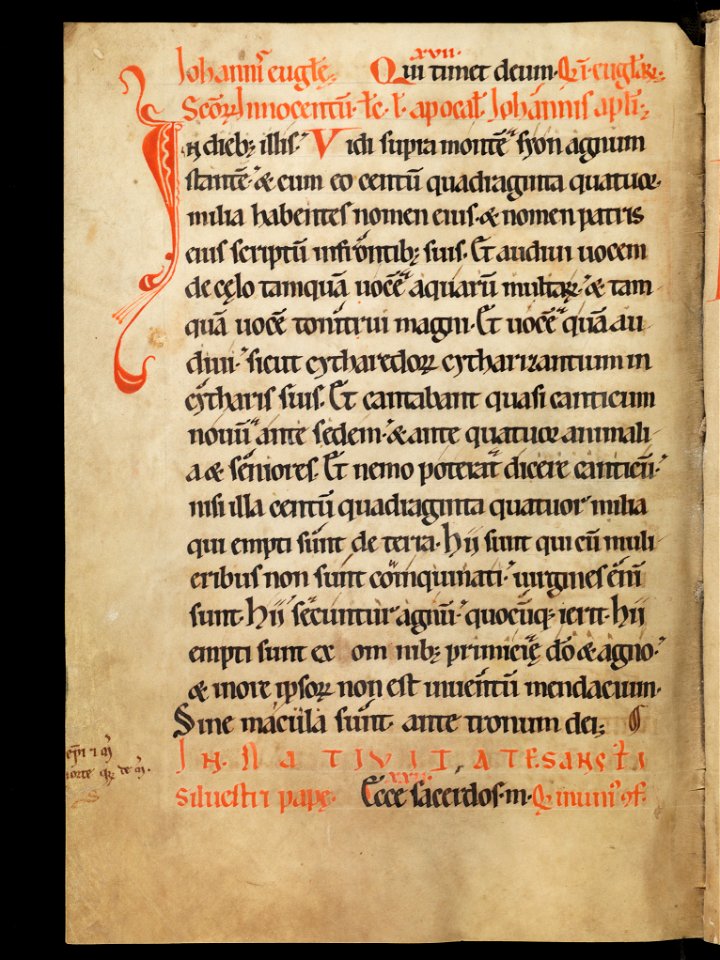 Johannis eugłę. xvii. Qui timet deum.
Scōꝝ Innocentū. łc. ł. apocal̄. Johannis apłi.
In dieb; illis. Vidi supra montē syon agnum
stantē. & cum eo centū quadraginta quatuor
milia habentes nomen eius. & nomen patris
eius scriptū in frontib; suis. Et audiui uocem
de cęlo tamquā uocē aquarū multaꝝ. & tam
quā uocē tonitrui magni. Et uocē quā au
diui. sicut cytharedoꝝ cytharizantium in
cytharis suis. Et cantabant quasi canticum
nouū ante sedem. & ante quatuor animali
a & seniores. Et nemo poterat dicere canticū.
nisi illa centū quadraginta quatuor milia
qui empti sunt de terra. hij sunt qui cū muli
eribus non sunt coinquinati. uirgines enī
sunt. hij secuntur agnū. quocūq; ierit. hij
empti sunt ex om nib; primicię dō & agno.
& in ore ipsoꝝ non est inuentū mendacium.
Sine macula sunt ante tronum dei.
IN NATIVITATE SANCTI
siluestri papę. xxvii. Ecce sacerdos. m.